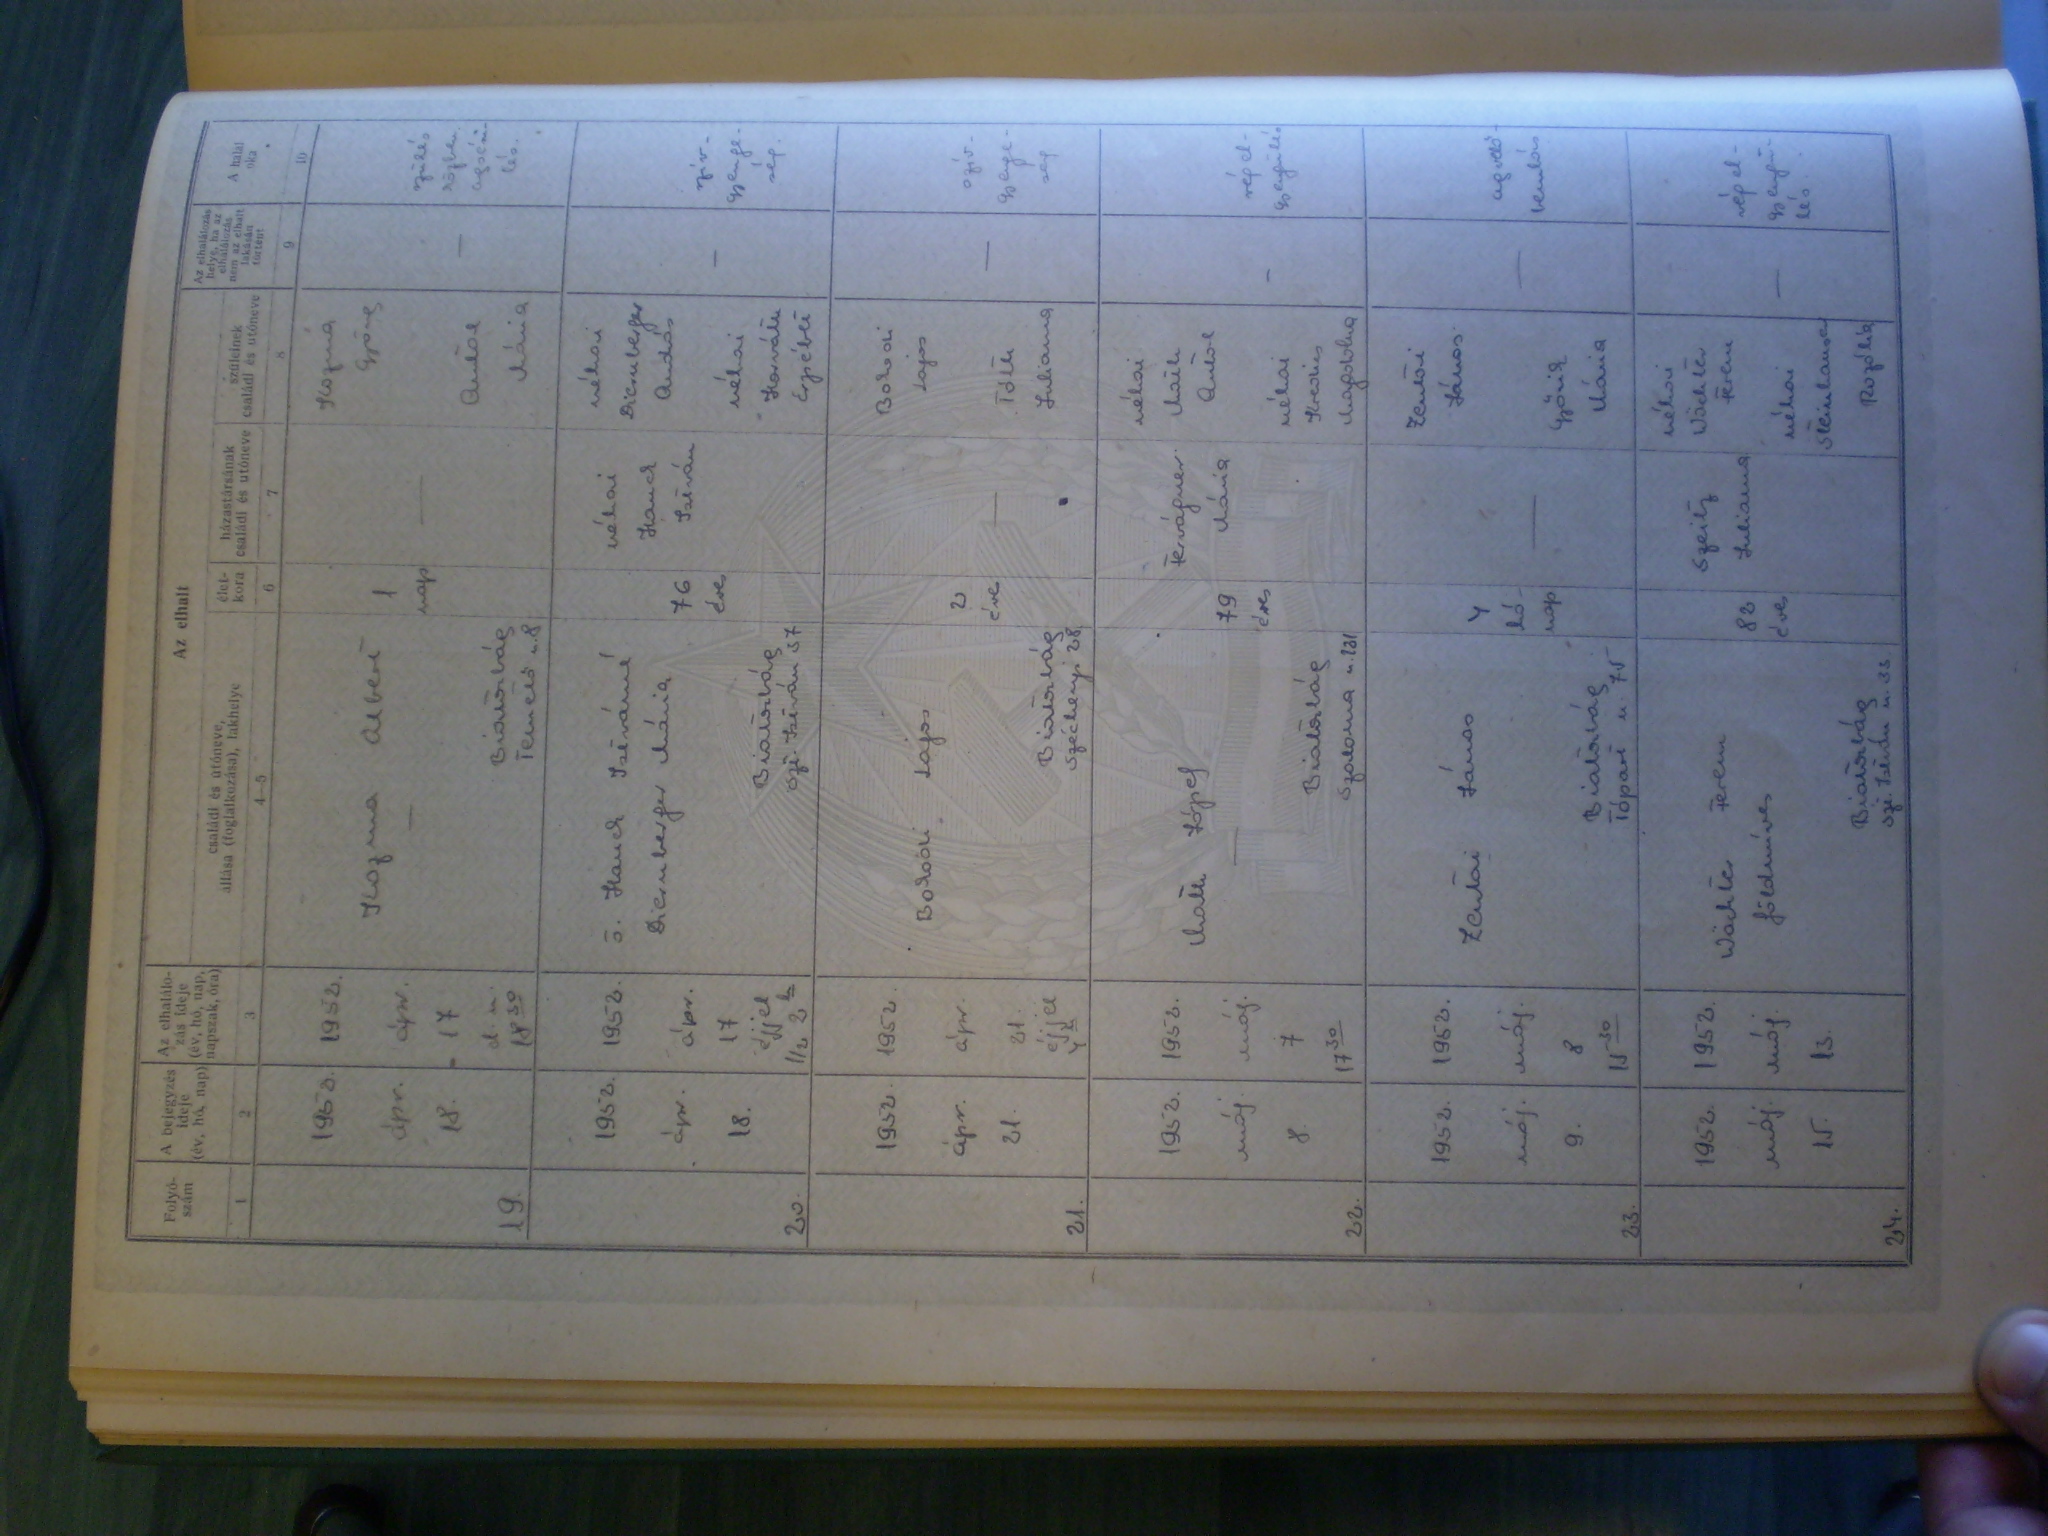 Az elhalt
Folyó-
szám
A bejegyzés
ideje
(év, hó, nap)
Az elhalálo-
zás ideje
(év, hó, nap,
napszak, óra)
családi és utóneve,
állása (foglalkozása), lakhelye
élet-
kora
házastársának
családi és utóneve
szüleinek
családi és utóneve
Az elhalálozás
helye, ha az
elhalálozás
nem az elhalt
lakásán
történt
A halál
oka
1
2
3
4—5
6
7
8
9
10
19.
1952.
ápr.
18.
1952.
ápr.
17
d. u.
18 30
Kozma Albert
—
Biatorbág
Temető u. 8
1
nap
—
Kozma
György
Antal
Mária
—
szülés
közben
20.
1952.
ápr.
18.
1952.
ápr.
17
éjjel
1/2 2 h
ö. Hauck Istvánné
Diernberger Mária
Biatorbág
Szt. István 57
76
éves
néhai
Hauck
István
néhai
Diernberger
András
néhai
Horváth
Erzsébet
—
szív-
gyenge-
ség.
21.
1952.
ápr.
21.
1952.
ápr.
21.
éjjel
4 h
Bokodi Lajos
Biatorbág
Széchenyi 28
2
éve
—
Bokodi
Lajos
Tóth
Julianna
—
szív-
gyenge-
ség
22.
1952.
máj.
8.
1952.
máj.
7
17 30
Máth József
Biatorbág
Szabadság u. 131
79
éves
Mária
néhai
Máth
Antal
néhai
Magdolna
—
végel-
gyengülés
23.
1952.
máj.
9.
1952.
máj.
8
15 30
Zentai János
Biatorbág
Tópart u. 75
4
hó-
nap
—
Zentai
János
Mária
—
agyvelő-
24.
1952.
máj.
15.
1952.
máj.
13.
Wächter Ferenc
földműves
Biatorbág
Szt. István u. 33
82
éves
Szeitz
Julianna
néhai
Wächter
Ferenc
néhai
Rozália
—
végel-
gyengü-
lés.